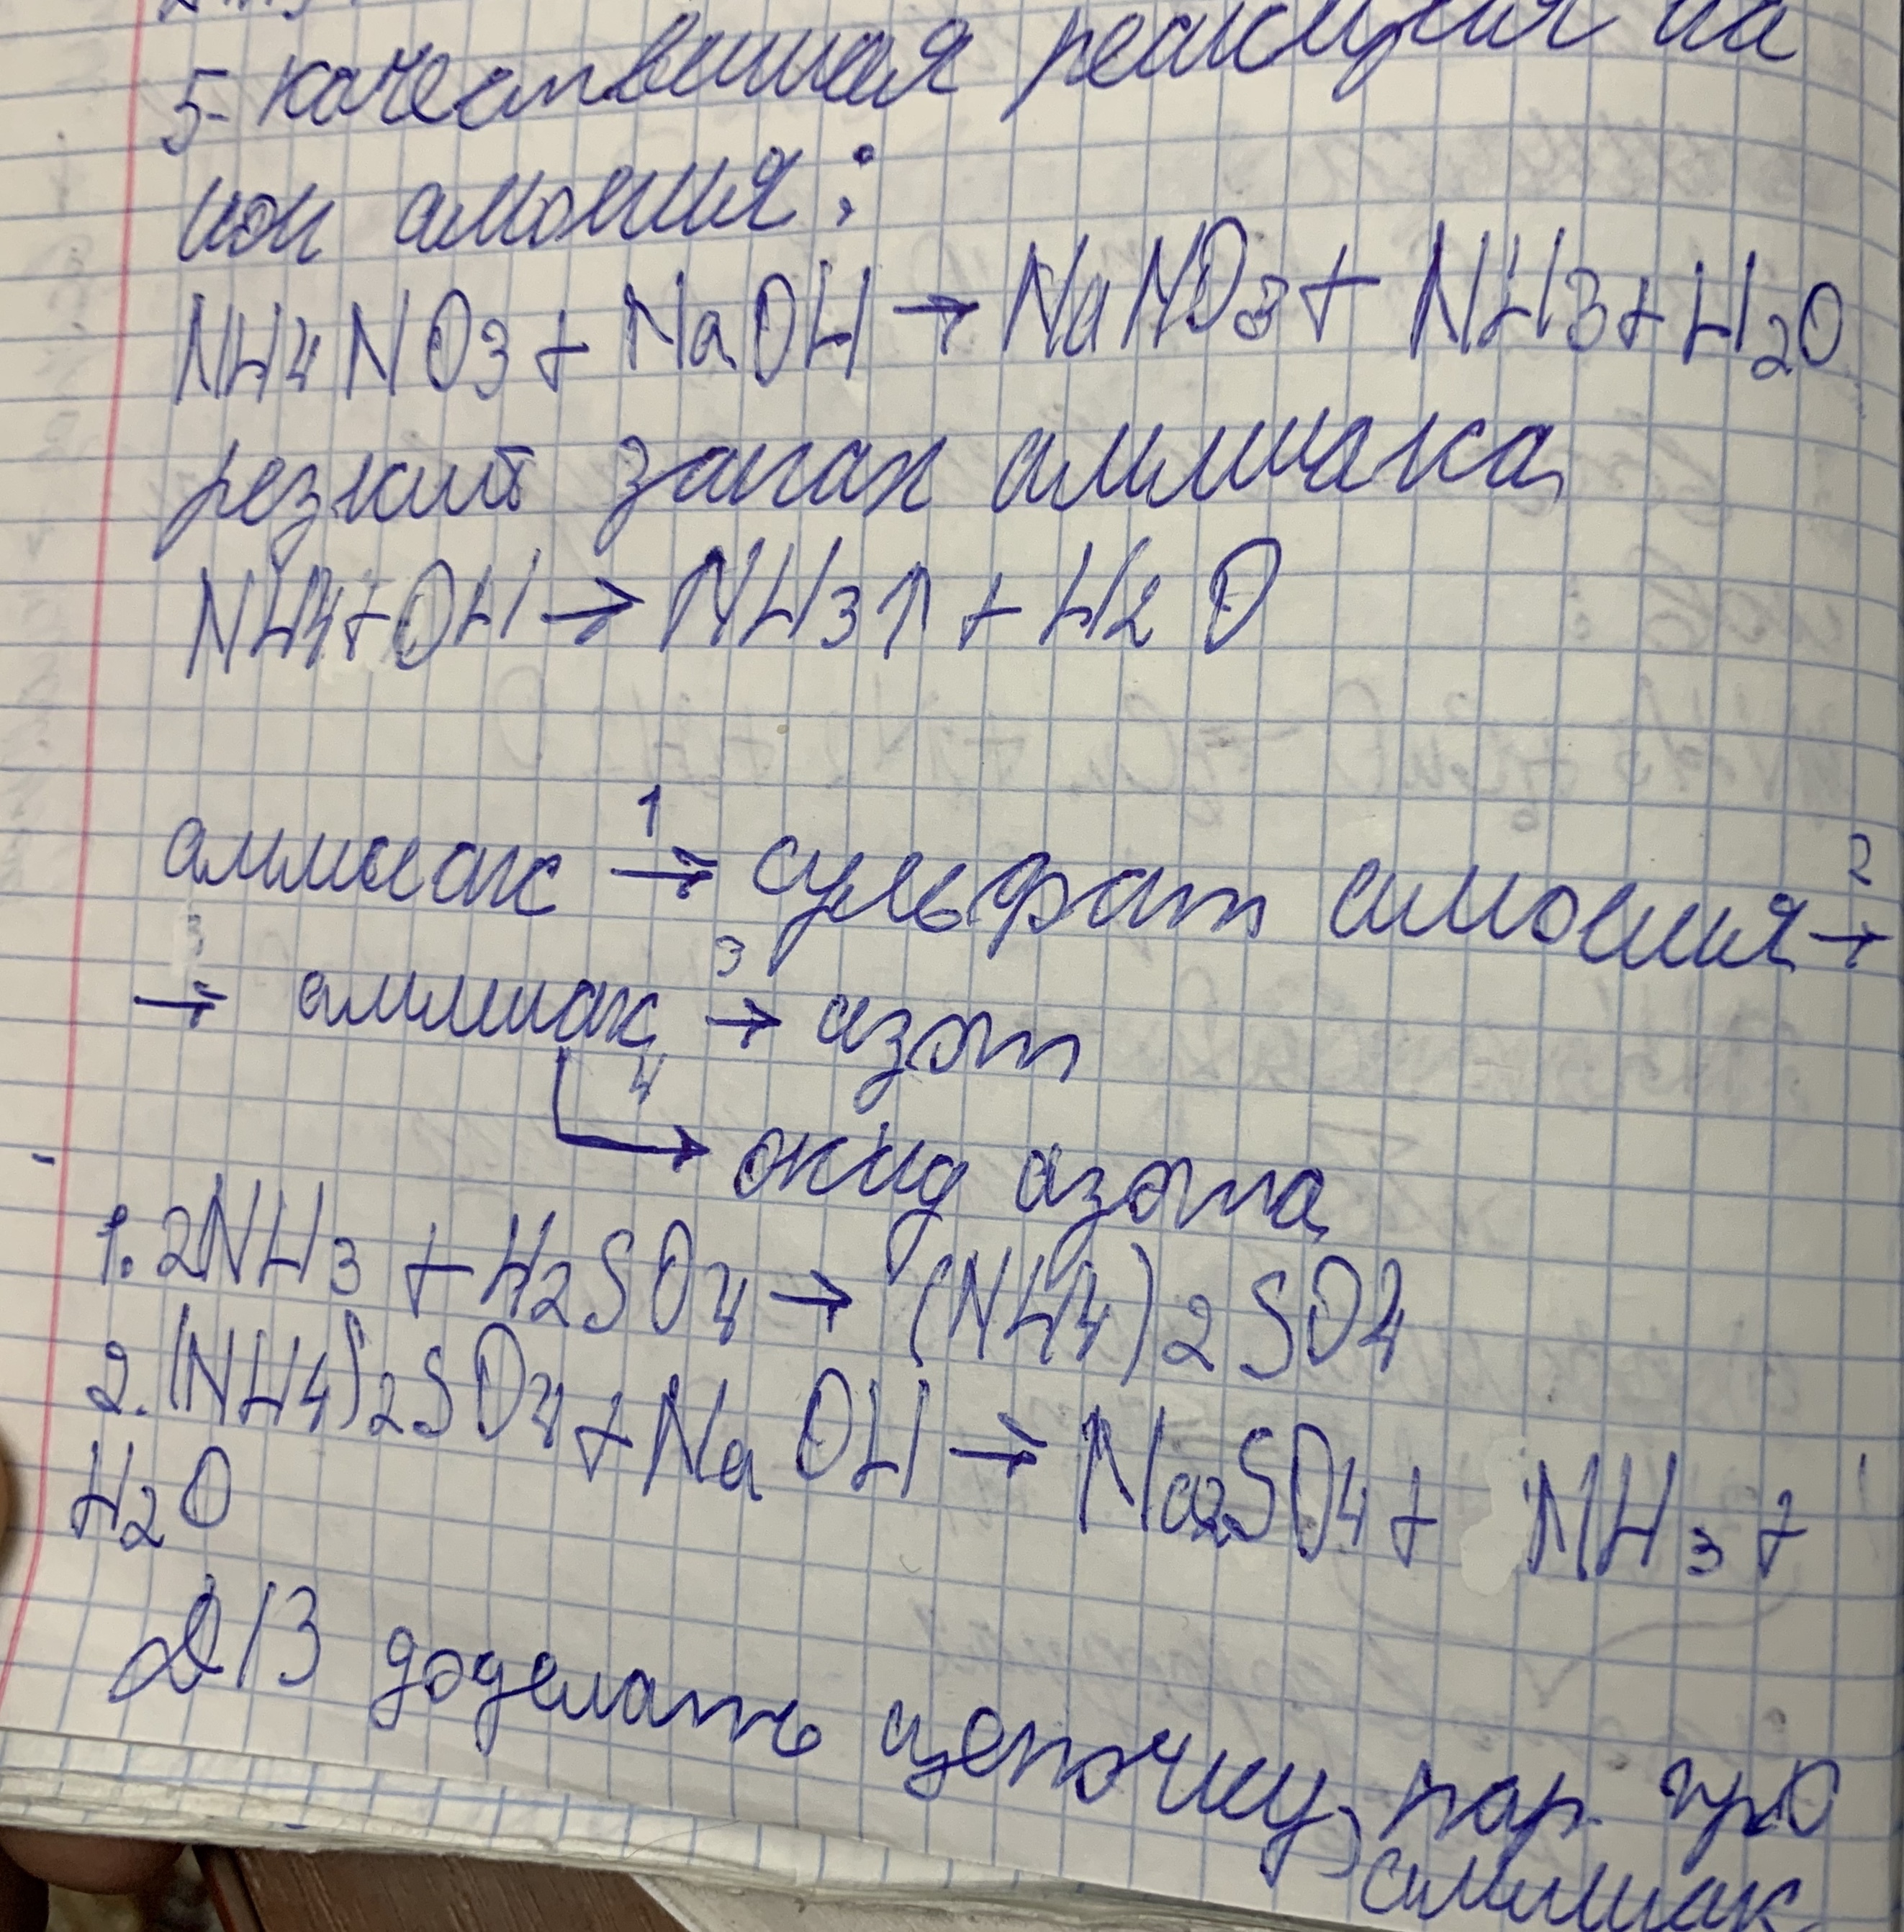 5- качественная реакция на
ион амония:
NH4NO3 + NaOH → NaNO3 + NH3 + H2O
резкий запах аммиака
NH4+OH → NH3↑ + H2O
аммиак 1→ сульфат амония 2→
→ аммиак 3→ азот
4→ оксид азота
1. 2NH3 + H2SO4 → (NH4)2SO4
2. (NH4)2SO4 + NaOH → Na2SO4 + NH3 +
H2O
Д/З доделать цепочку, пар. про
аммиак